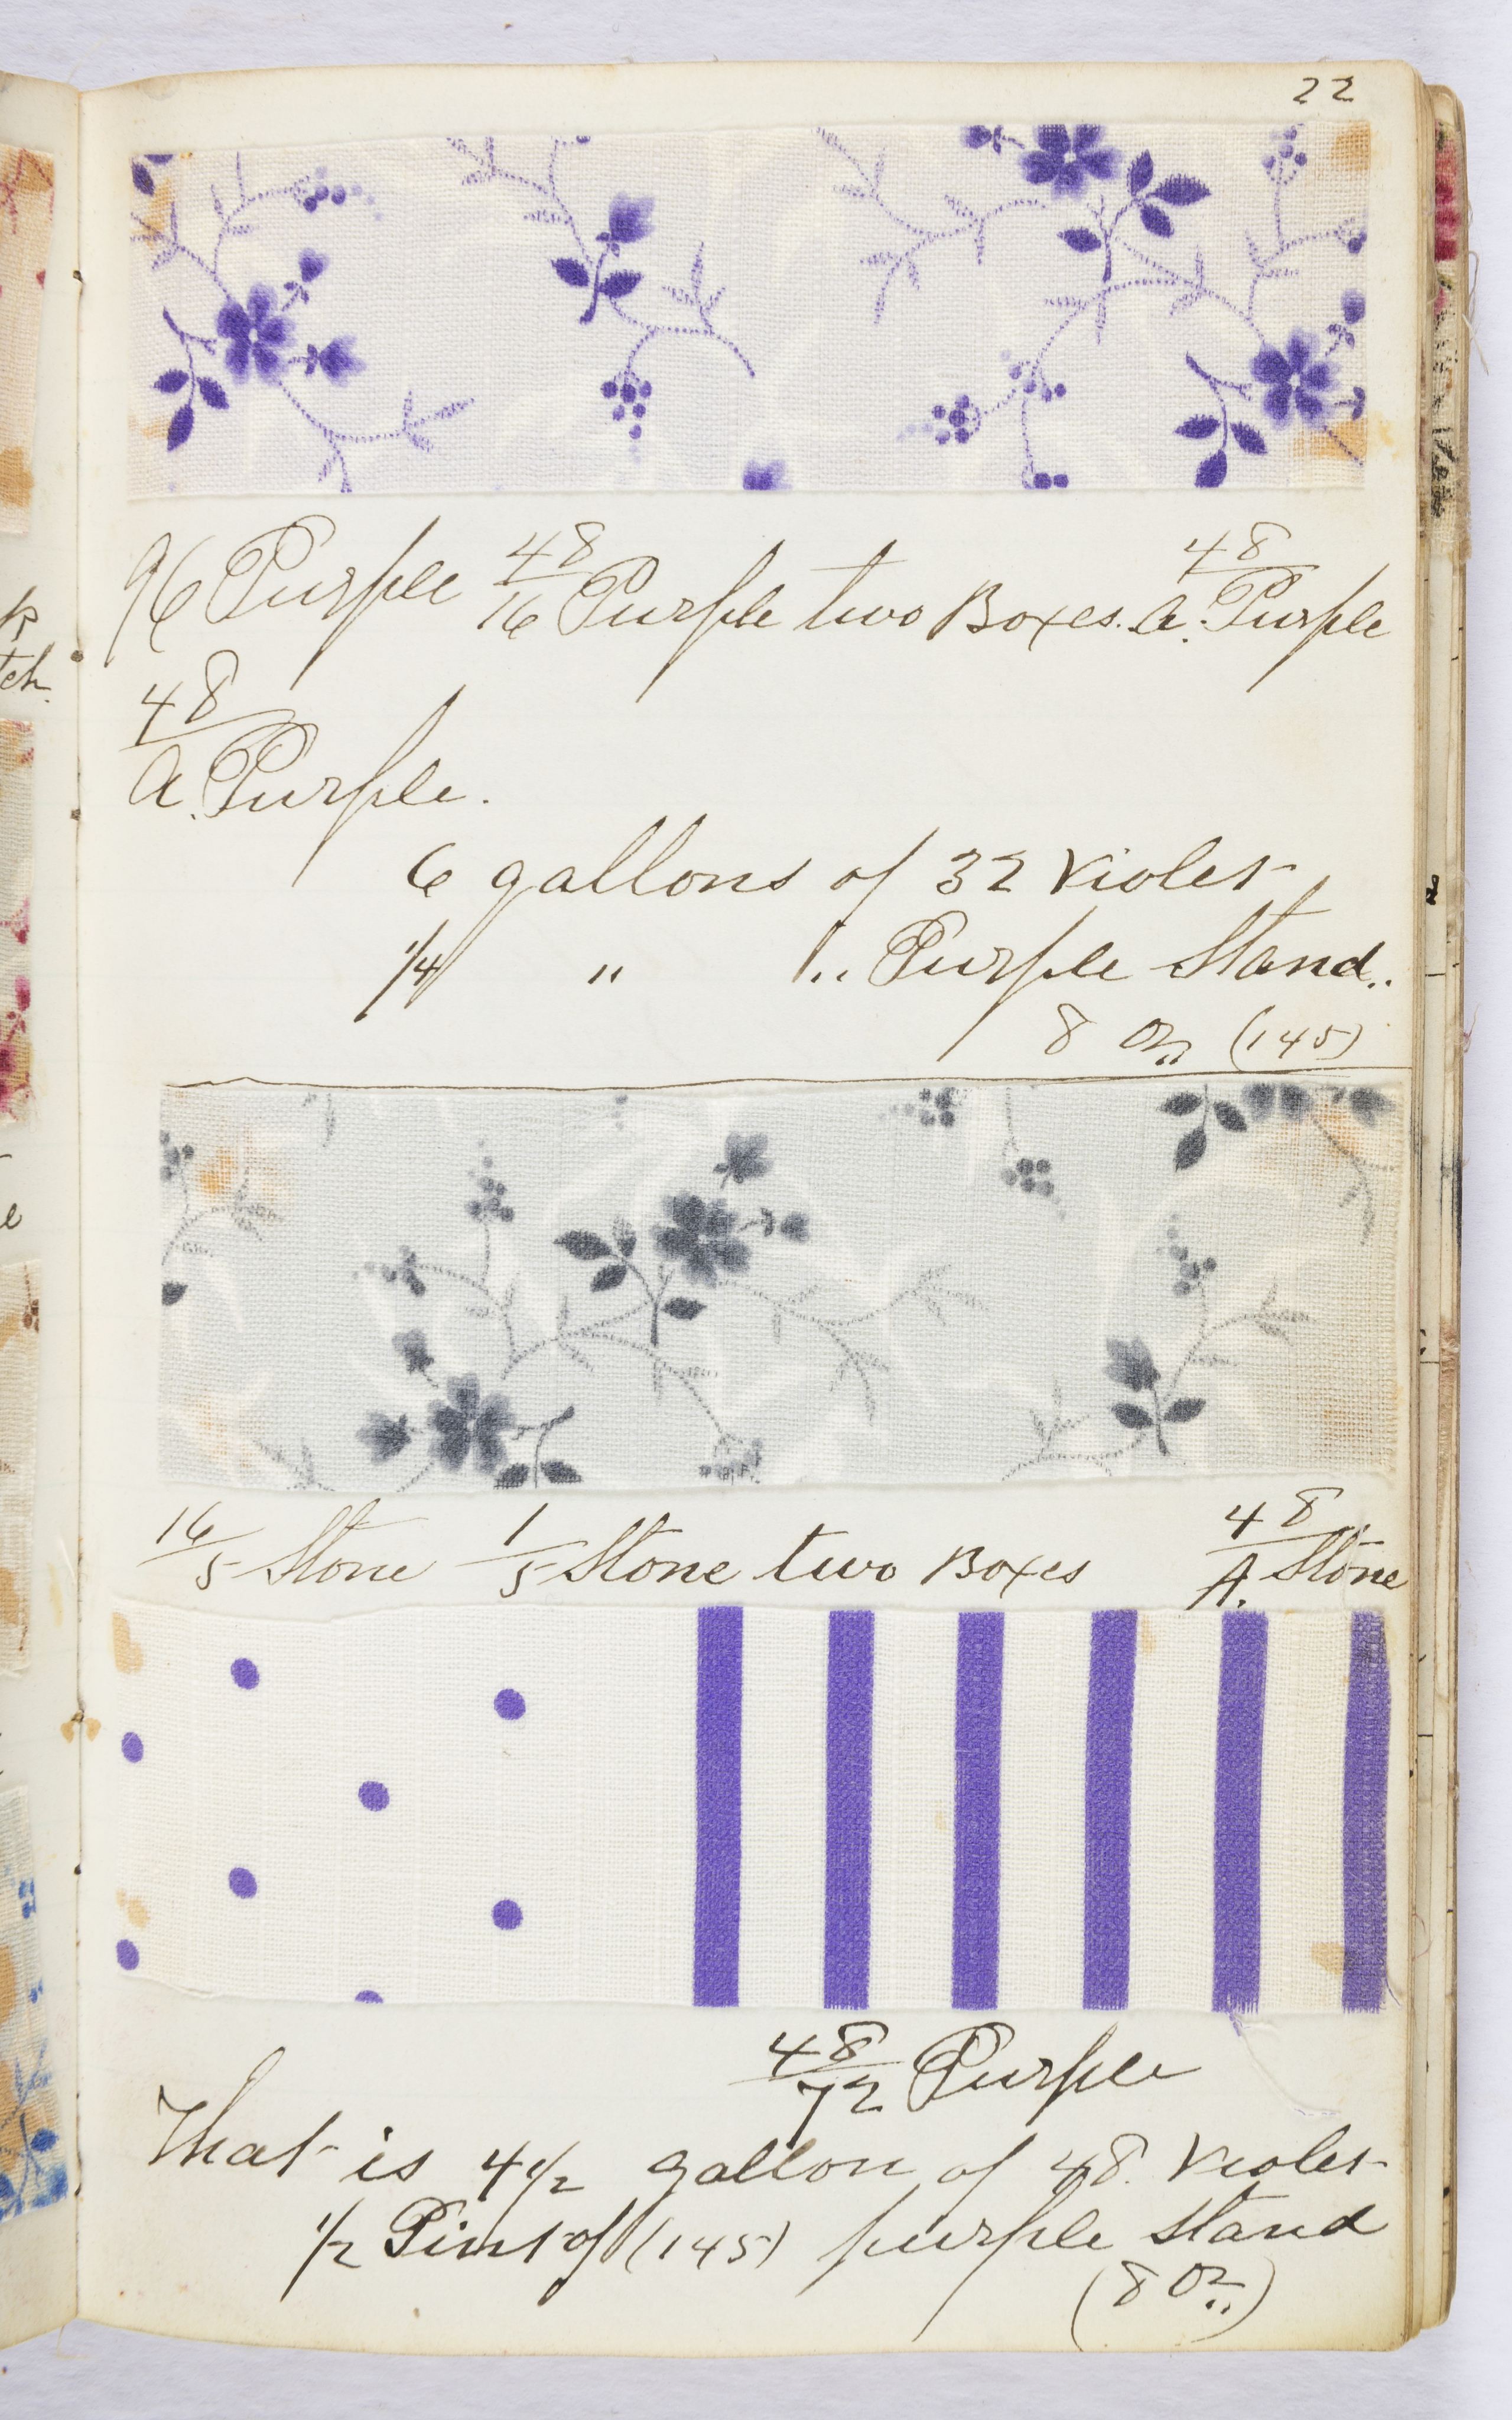 22
96 Purple 48/16 Purple two Boxes. a. 48/ Purple
48/a. Purple.
6 gallons of 32 Violet
1/4 " " Purple Stand..
8 oz (145)
16/5 Stone 1/5 Stone two Boxes 48/A. Stone
48/72 Purple
That is 4 1/2 gallon of 48. Violet
1/2 Pint of (145) purple stand
(8 oz..)